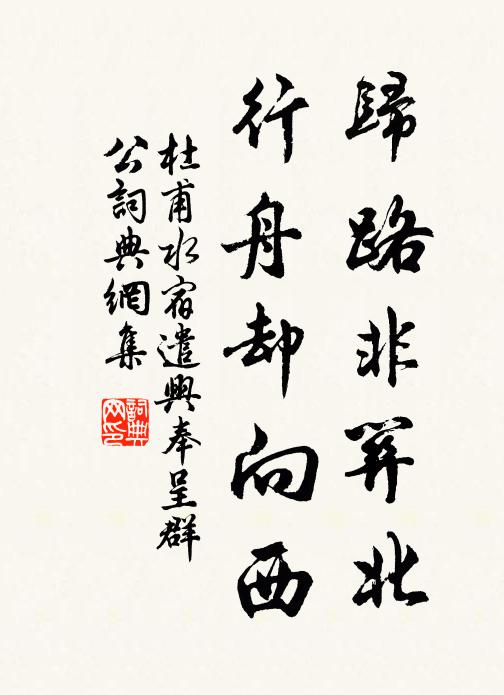 歸路非關北
行舟却向西
杜甫水宿遣興奉呈群
公詞典網集
詞典
网印